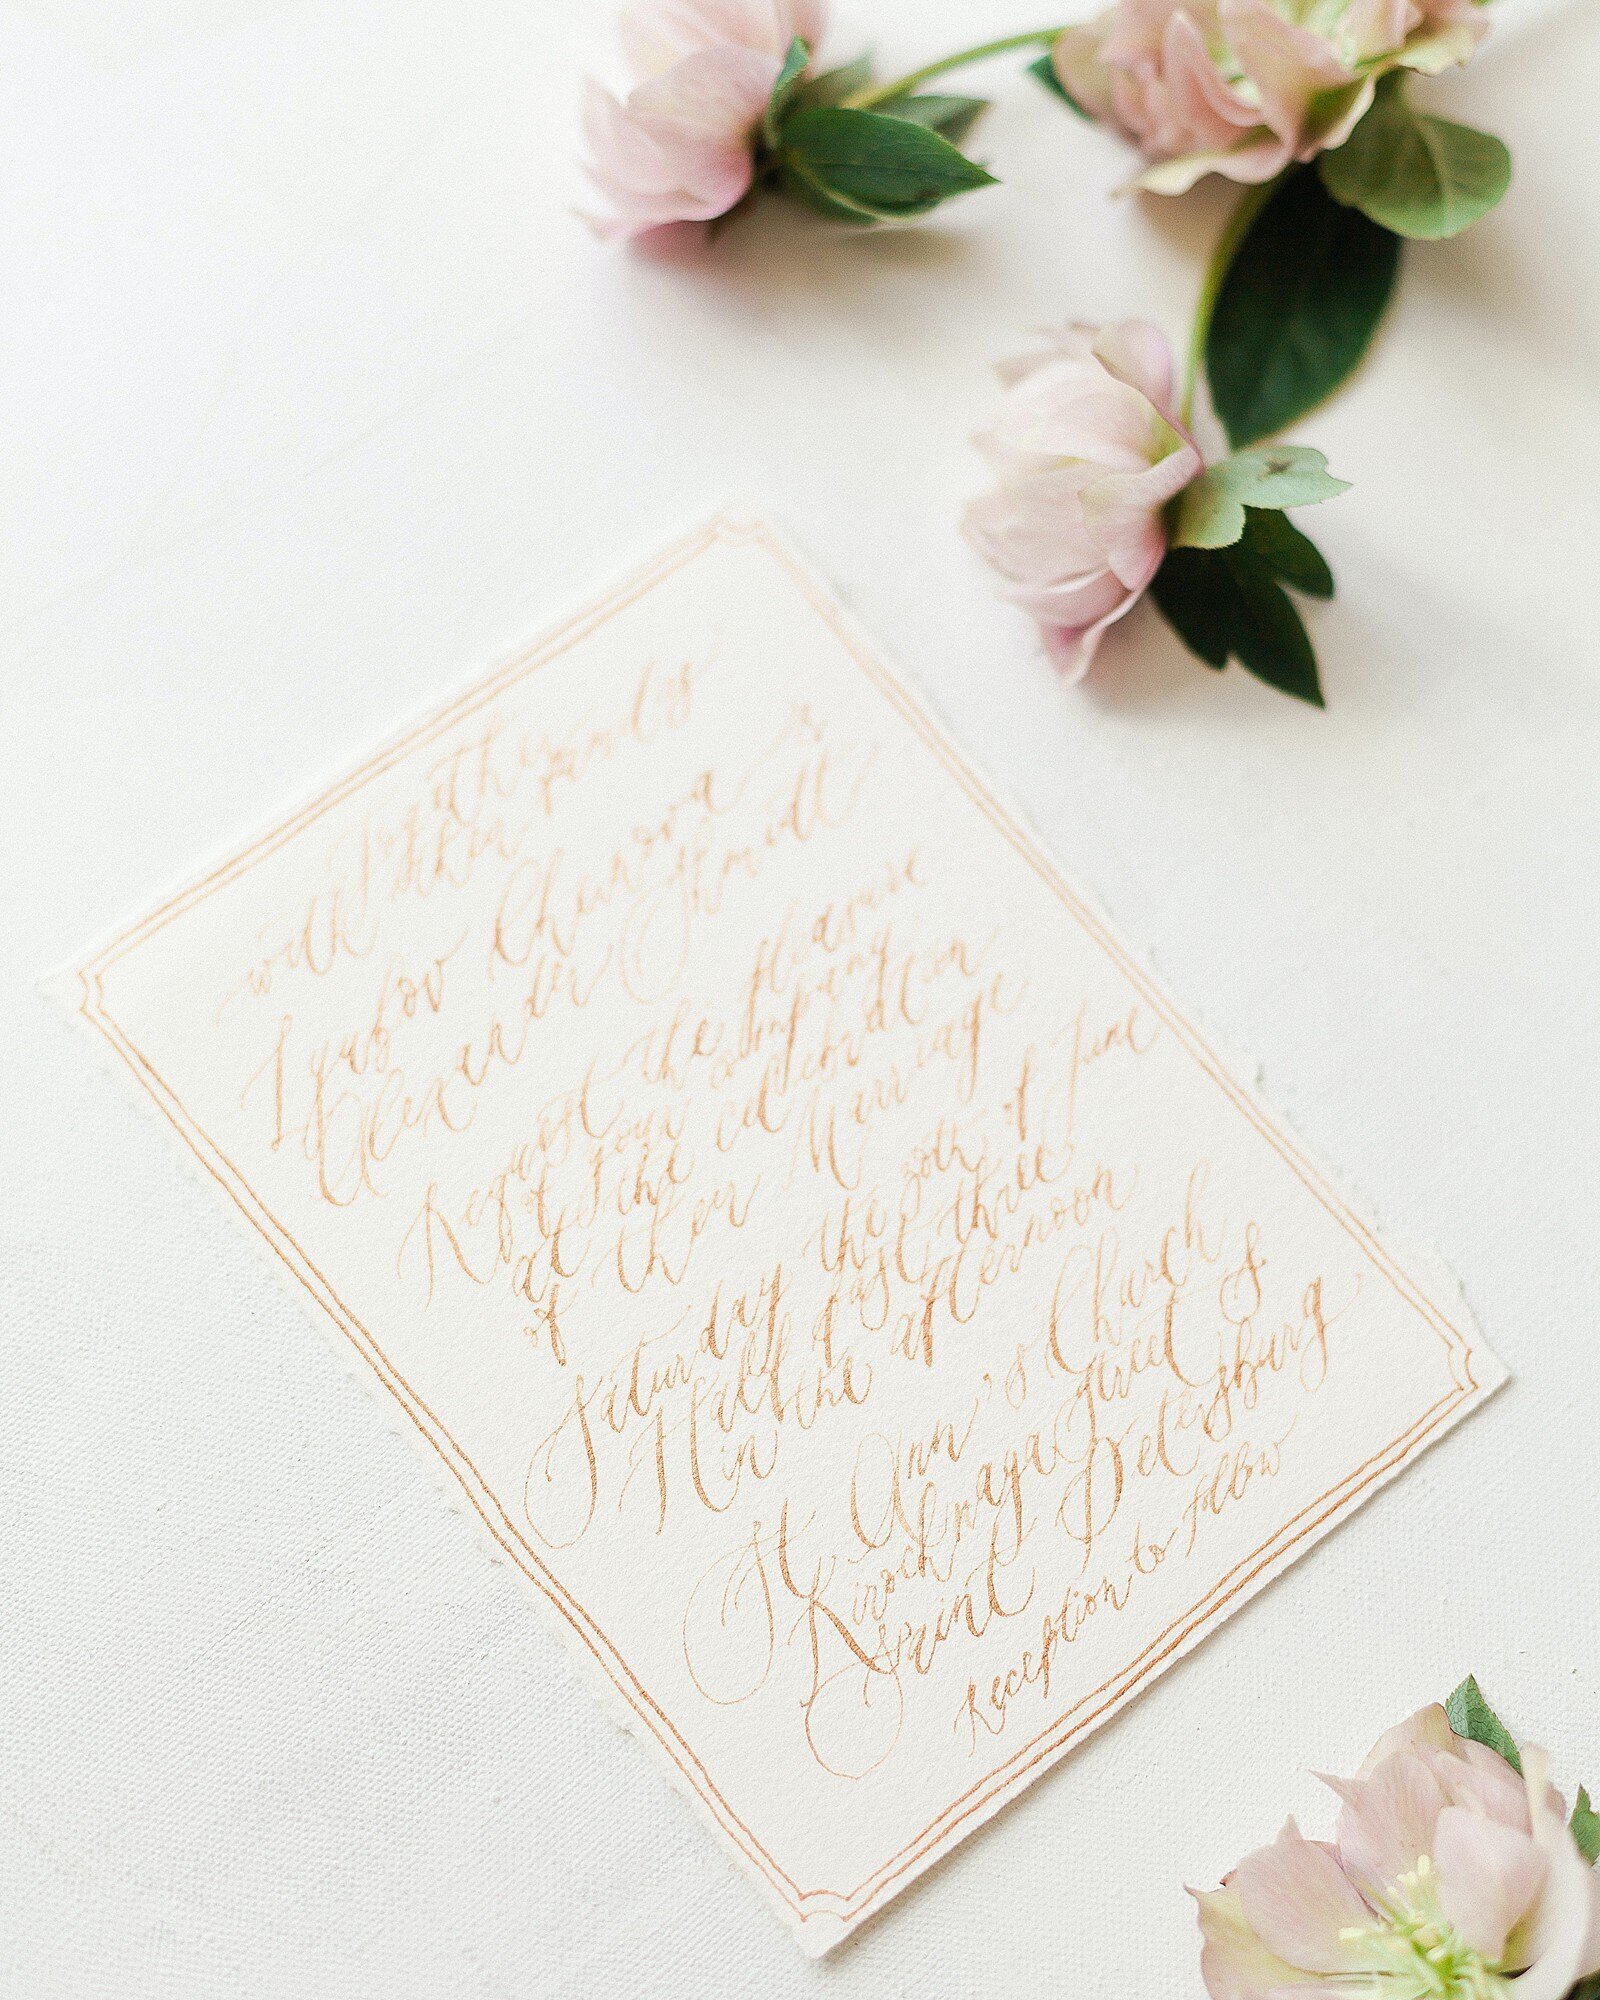 Together
with their families
Lyubov Chernova &
Alexander Smith
Request the Pleasure
of your company
at the celebration
of their Marriage
Saturday the 20th of June
Half past three
in the afternoon
St Ann's Church
Kirochnaya Street 8
Saint Petersburg
Reception to follow